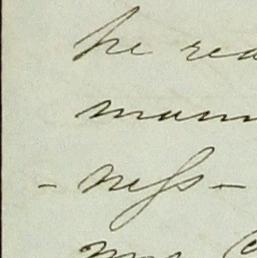 he rea
mann
- ness -